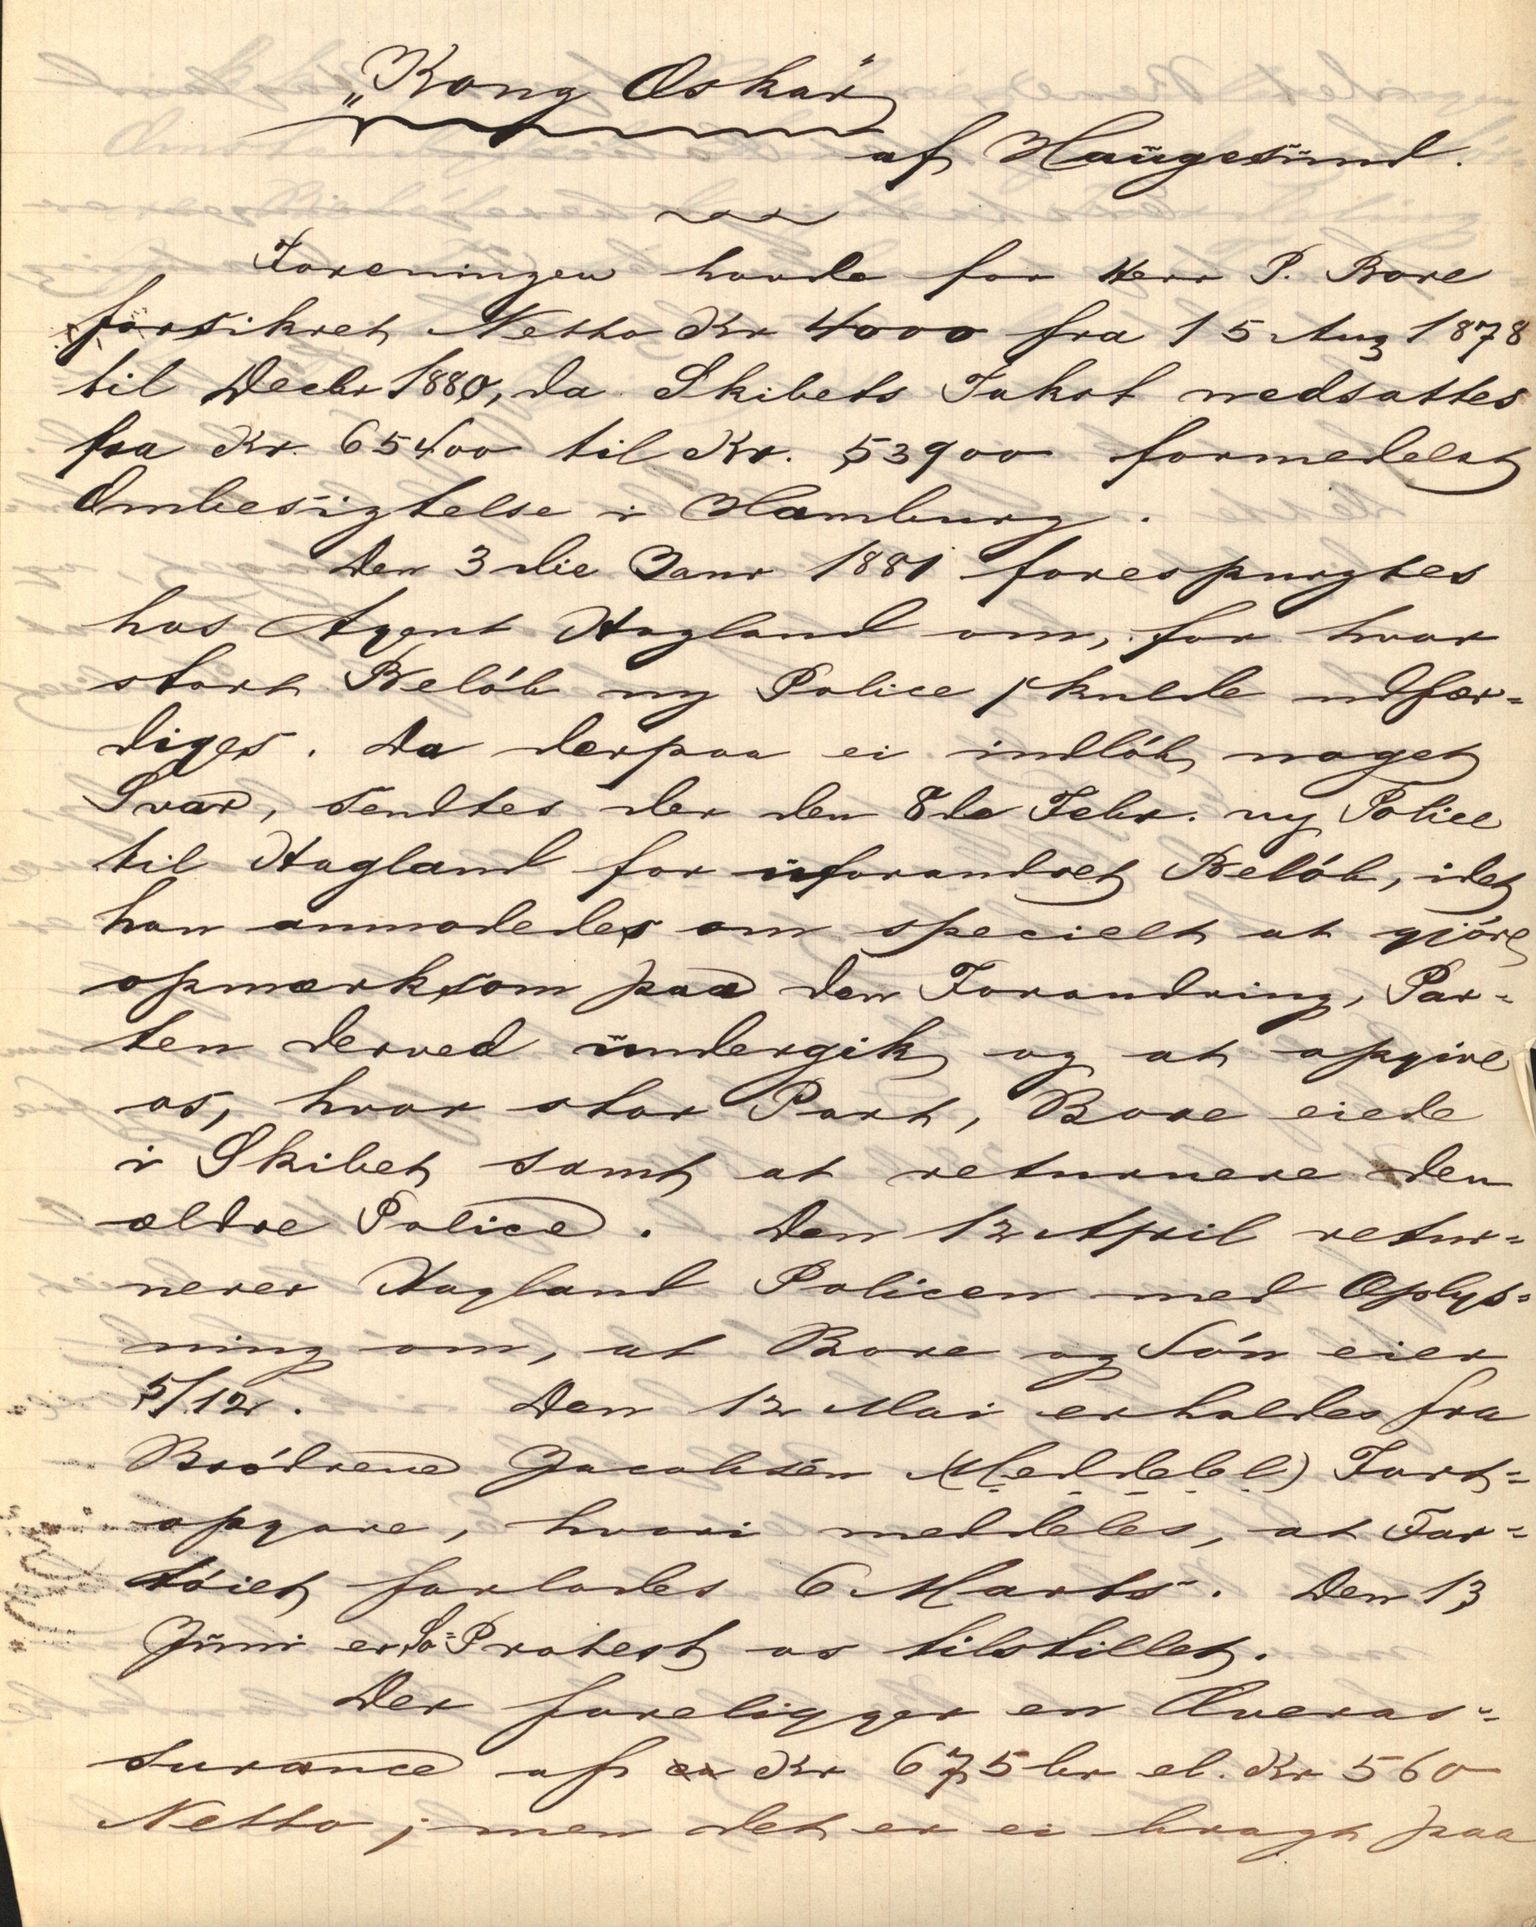 „Kong Oskar"
af Haugesund.
Foreningen havde for Herr P. Bore
forsikret Netto Kr 4000 fra 15 Aug 1878
til Decbr 1880, da Skibets Takst nedsattes
fra Kr. 65400 til Kr. 53900 formedelst
Ombesigtelse i Hamburg.
Den 3die Janr 1881 forespurgtes
hos Agent Hagland om, for hvor
stort Beløb ny Police skulde udfær=
diges. Da derpaa ei indløb noget
Svar, sendtes der den 8de Febr. ny Police
til Hagland for uforandret Beløb, idet
han anmodedes om specielt at gjøre
opmærksom paa den Forandring, Par=
ten derved undergik og at opgive
os, hvor stor Part, Bore eiede
i Skibet samt at returnere den
ældre Police. Den 12 April retur=
nerer Hagland Policen med Oplys=
ning om, at Bore og Søn eier
5/12. Den 12 Mai erholdes fra
Brødrene Jacobsen (Meddelel) Fort=
opgave, hvori meddeles, at Far=
tøiet forlodes 6 Marts. Den 13
Juni er Sø=Protest os tilstillet.
Der foreligger en Overas=
surance af Kr 675 br el. Kr 560
Netto; men det er ei bragt paa